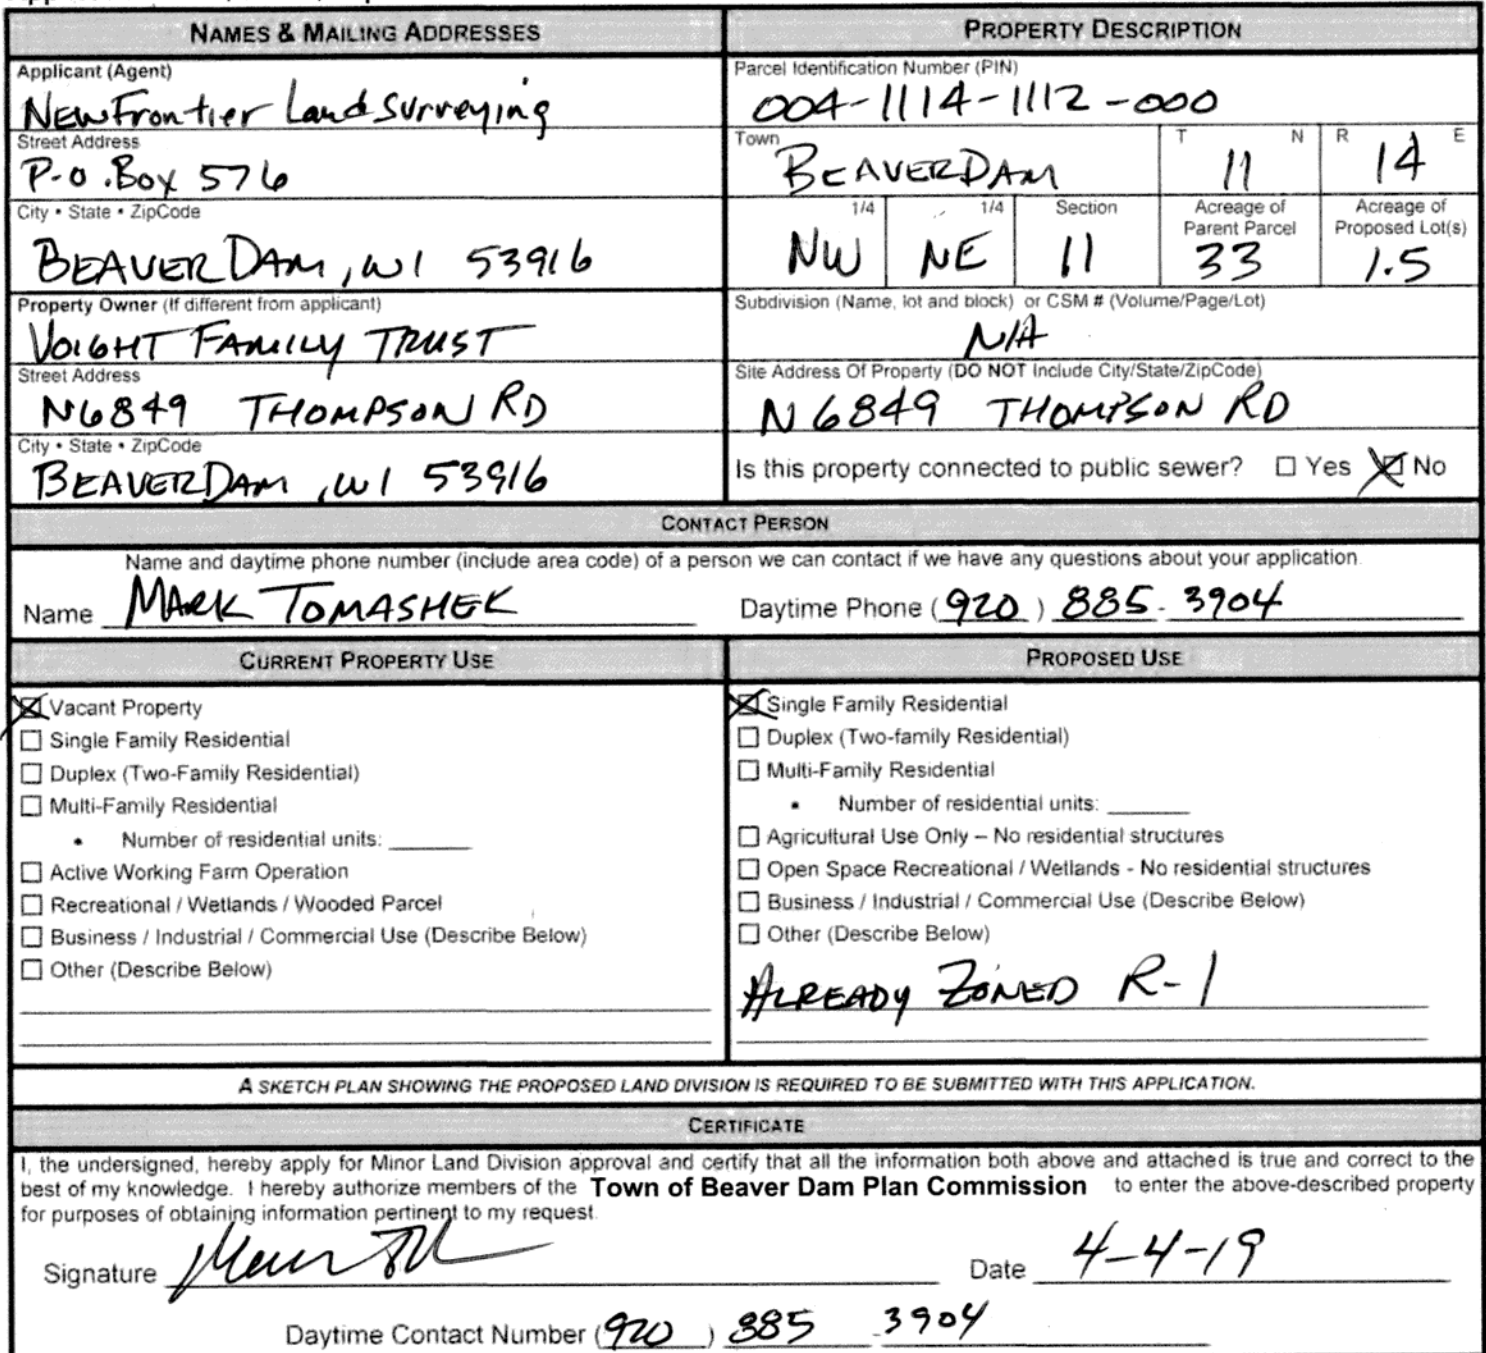 NAMES & MAILING ADDRESSES
Applicant (Agent)
NEWFrontier Land Surveying
Street Address
P.O. Box 576
City • State • ZipCode
BEAVER DAM, WI 53916
Property Owner (If different from applicant)
VOIGHT FAMILY TRUST
Street Address
N6849 THOMPSON RD
City • State • ZipCode
BEAVER DAM, WI 53916
PROPERTY DESCRIPTION
Parcel Identification Number (PIN)
004-1114-1112-000
Town T N R E
BEAVER DAM 11 14
1/4 1/4 Section Acreage of Parent Parcel Acreage of Proposed Lot(s)
NW NE 11 33 1.5
Subdivision (Name, lot and block) or CSM # (Volume/Page/Lot)
N/A
Site Address Of Property (DO NOT Include City/State/ZipCode)
N6849 THOMPSON RD
Is this property connected to public sewer? ☐ Yes ☒ No
CONTACT PERSON
Name and daytime phone number (include area code) of a person we can contact if we have any questions about your application.
Name MARK TOMASHEK Daytime Phone (920) 885-3904
CURRENT PROPERTY USE
☒ Vacant Property
☐ Single Family Residential
☐ Duplex (Two-Family Residential)
☐ Multi-Family Residential
• Number of residential units: ______
☐ Active Working Farm Operation
☐ Recreational / Wetlands / Wooded Parcel
☐ Business / Industrial / Commercial Use (Describe Below)
☐ Other (Describe Below)
PROPOSED USE
☒ Single Family Residential
☐ Duplex (Two-family Residential)
☐ Multi-Family Residential
• Number of residential units: ______
☐ Agricultural Use Only – No residential structures
☐ Open Space Recreational / Wetlands - No residential structures
☐ Business / Industrial / Commercial Use (Describe Below)
☐ Other (Describe Below)
ALREADY ZONED R-1
A SKETCH PLAN SHOWING THE PROPOSED LAND DIVISION IS REQUIRED TO BE SUBMITTED WITH THIS APPLICATION.
CERTIFICATE
I, the undersigned, hereby apply for Minor Land Division approval and certify that all the information both above and attached is true and correct to the
best of my knowledge. I hereby authorize members of the Town of Beaver Dam Plan Commission to enter the above-described property
for purposes of obtaining information pertinent to my request.
Signature Date 4-4-19
Daytime Contact Number (920) 885-3904